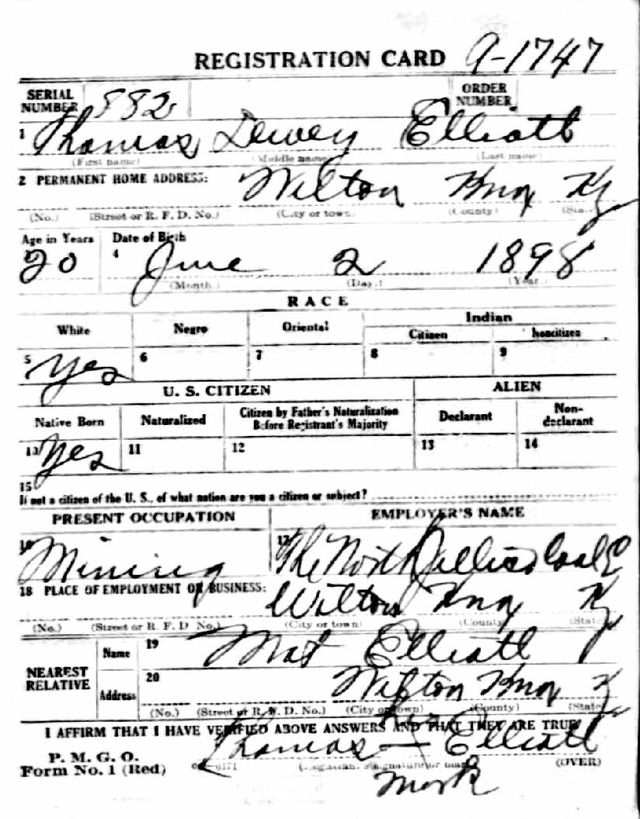 REGISTRATION CARD 9-1747
SERIAL NUMBER 882 ORDER NUMBER
1 Thomas Dewey Elliott
(First name) (Middle name) (Last name)
2 PERMANENT HOME ADDRESS: Wilton Knox Ky
(No.) (Street or R. F. D. No.) (City or town) (County) (State)
Age in Years Date of Birth
20 4 June 2 1898
(Month.) (Day.) (Year.)
RACE
White Negro Oriental Indian
Citizen Noncitizen
5 Yes 6 7 8 9
U. S. CITIZEN ALIEN
Native Born Naturalized Citizen by Father's Naturalization Before Registrant's Majority Declarant Non-declarant
10 Yes 11 12 13 14
15
If not a citizen of the U. S., of what nation are you a citizen or subject?
PRESENT OCCUPATION EMPLOYER'S NAME
16 Mining 17 The North Jellico Coal C
18 PLACE OF EMPLOYMENT OR BUSINESS: Wilton Knox Ky
(No.) (Street or R. F. D. No.) (City or town) (County) (State)
NEAREST RELATIVE Name 19 Mat Elliott
Address 20 Wilton Knox K
(No.) (Street or R. F. D. No.) (City or town) (County) (State)
I AFFIRM THAT I HAVE VERIFIED ABOVE ANSWERS AND THAT THEY ARE TRUE
P. M. G. O.
Form No. 1 (Red) Thomas Elliott
(Registrant's signature or mark) (OVER)
mark